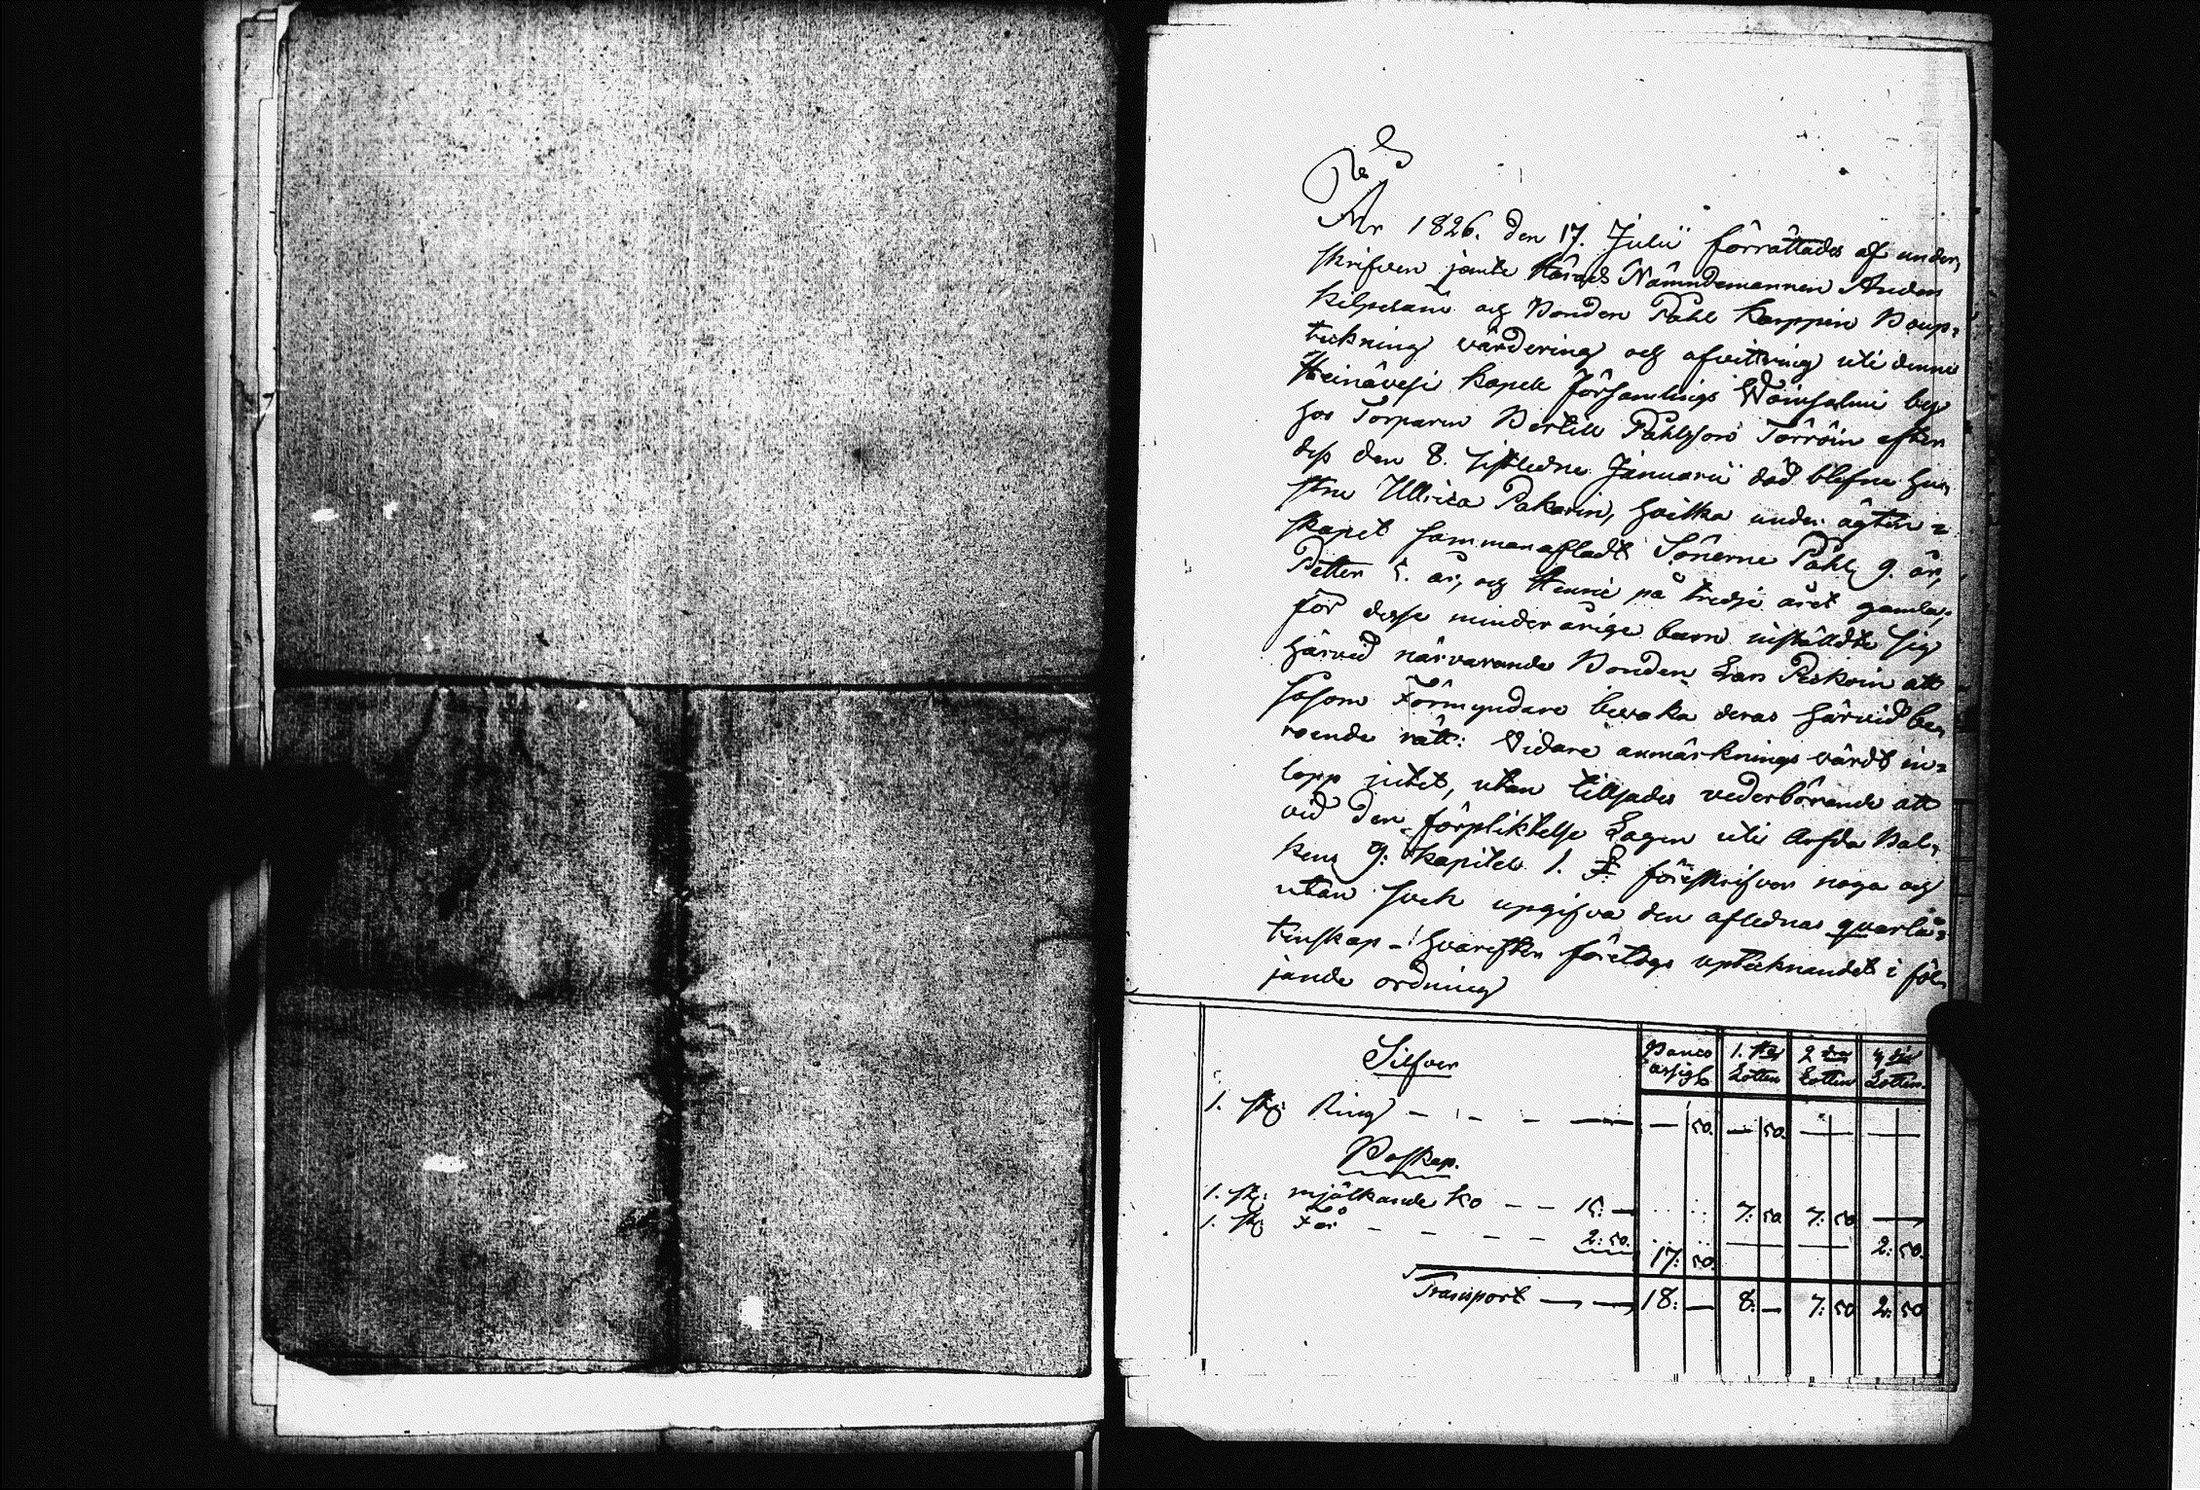 År 1826. den 17. Julii förrättades af under,
skrifven jemte Härads Nämndemannen Anders
Kilpeläin och Bonden Påhl Karppin Boup,
tekning värdering och afvittring uti denne
Heinävesi Kapell Församlings Wäinjalmi by
hos Torparen Bertill Påhlsson Törröin efter
dess den 8. sistledne Januarii död blefne hu,
stru Ullrica Pakarin, hvilka under ägten=
skapet sammanafladt Sönerne Påhl 9. år,
Petter 5. år, och Henric på tredje året gamla;
för desse minderårige barn instälde sig
härvid närvarande Bonden Lars Piskoin att
såsom Förmyndare bevaka deras härvid be,
roende rätt: Vidare anmärknings värdt in=
lopp intet, utan tillsades vederbörande att
vid den förpliktelse Lagen uti Ärfda Bal,
kens 9: Kapitel 1. §: föreskrifver noga och
utan svek upgifva den aflednas qvarlå=
tenskap - hvarefter företogs uptecknandet i föl,
jande ordning
Silfver Banco assign 1. sta Lotten 2 dra Lotten 3 dje Lotten.
1. st: Ring — — — — — 50. — 50. — —
Boskap.
1. st: mjölkande Ko — — 15: — 7: 50 7: 50 —
1. st: Får — — — — 2: 50. 17: 50. — — 2: 50.
Transport — — 18: — 8: — 7: 50 2: 50